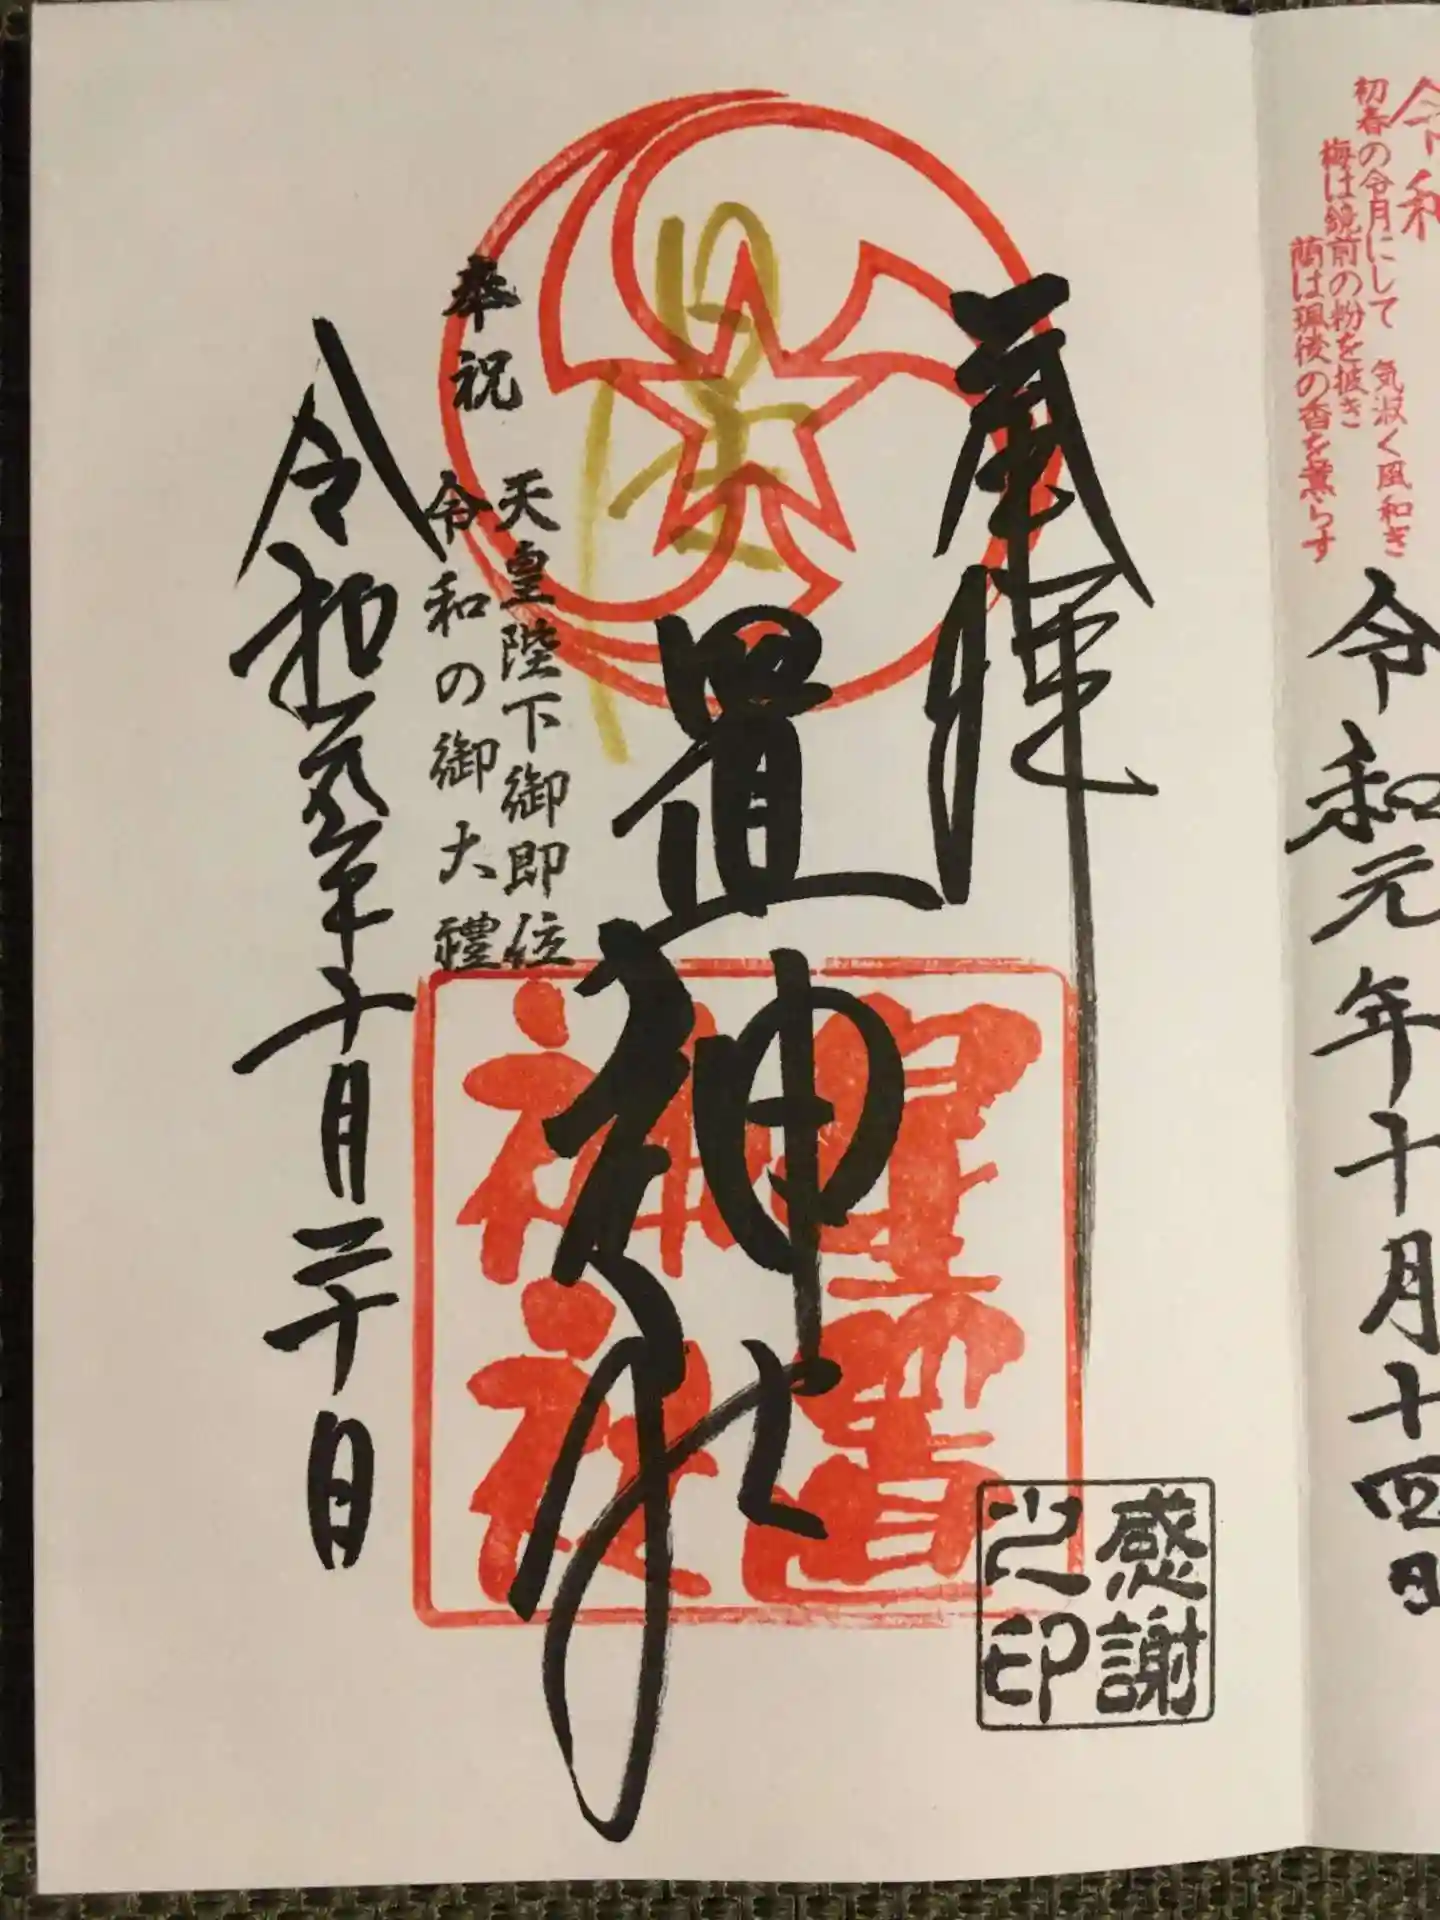 令和
初春の令月にして 気淑く風和ぎ
梅は鏡前の粉を披き
蘭は珮後の香を薫らす
令和元年十月十四日
奉拝
星置神社
星置神社
奉祝
天皇陛下御即位
令和の御大禮
令和元年十月二十日
感謝
之印